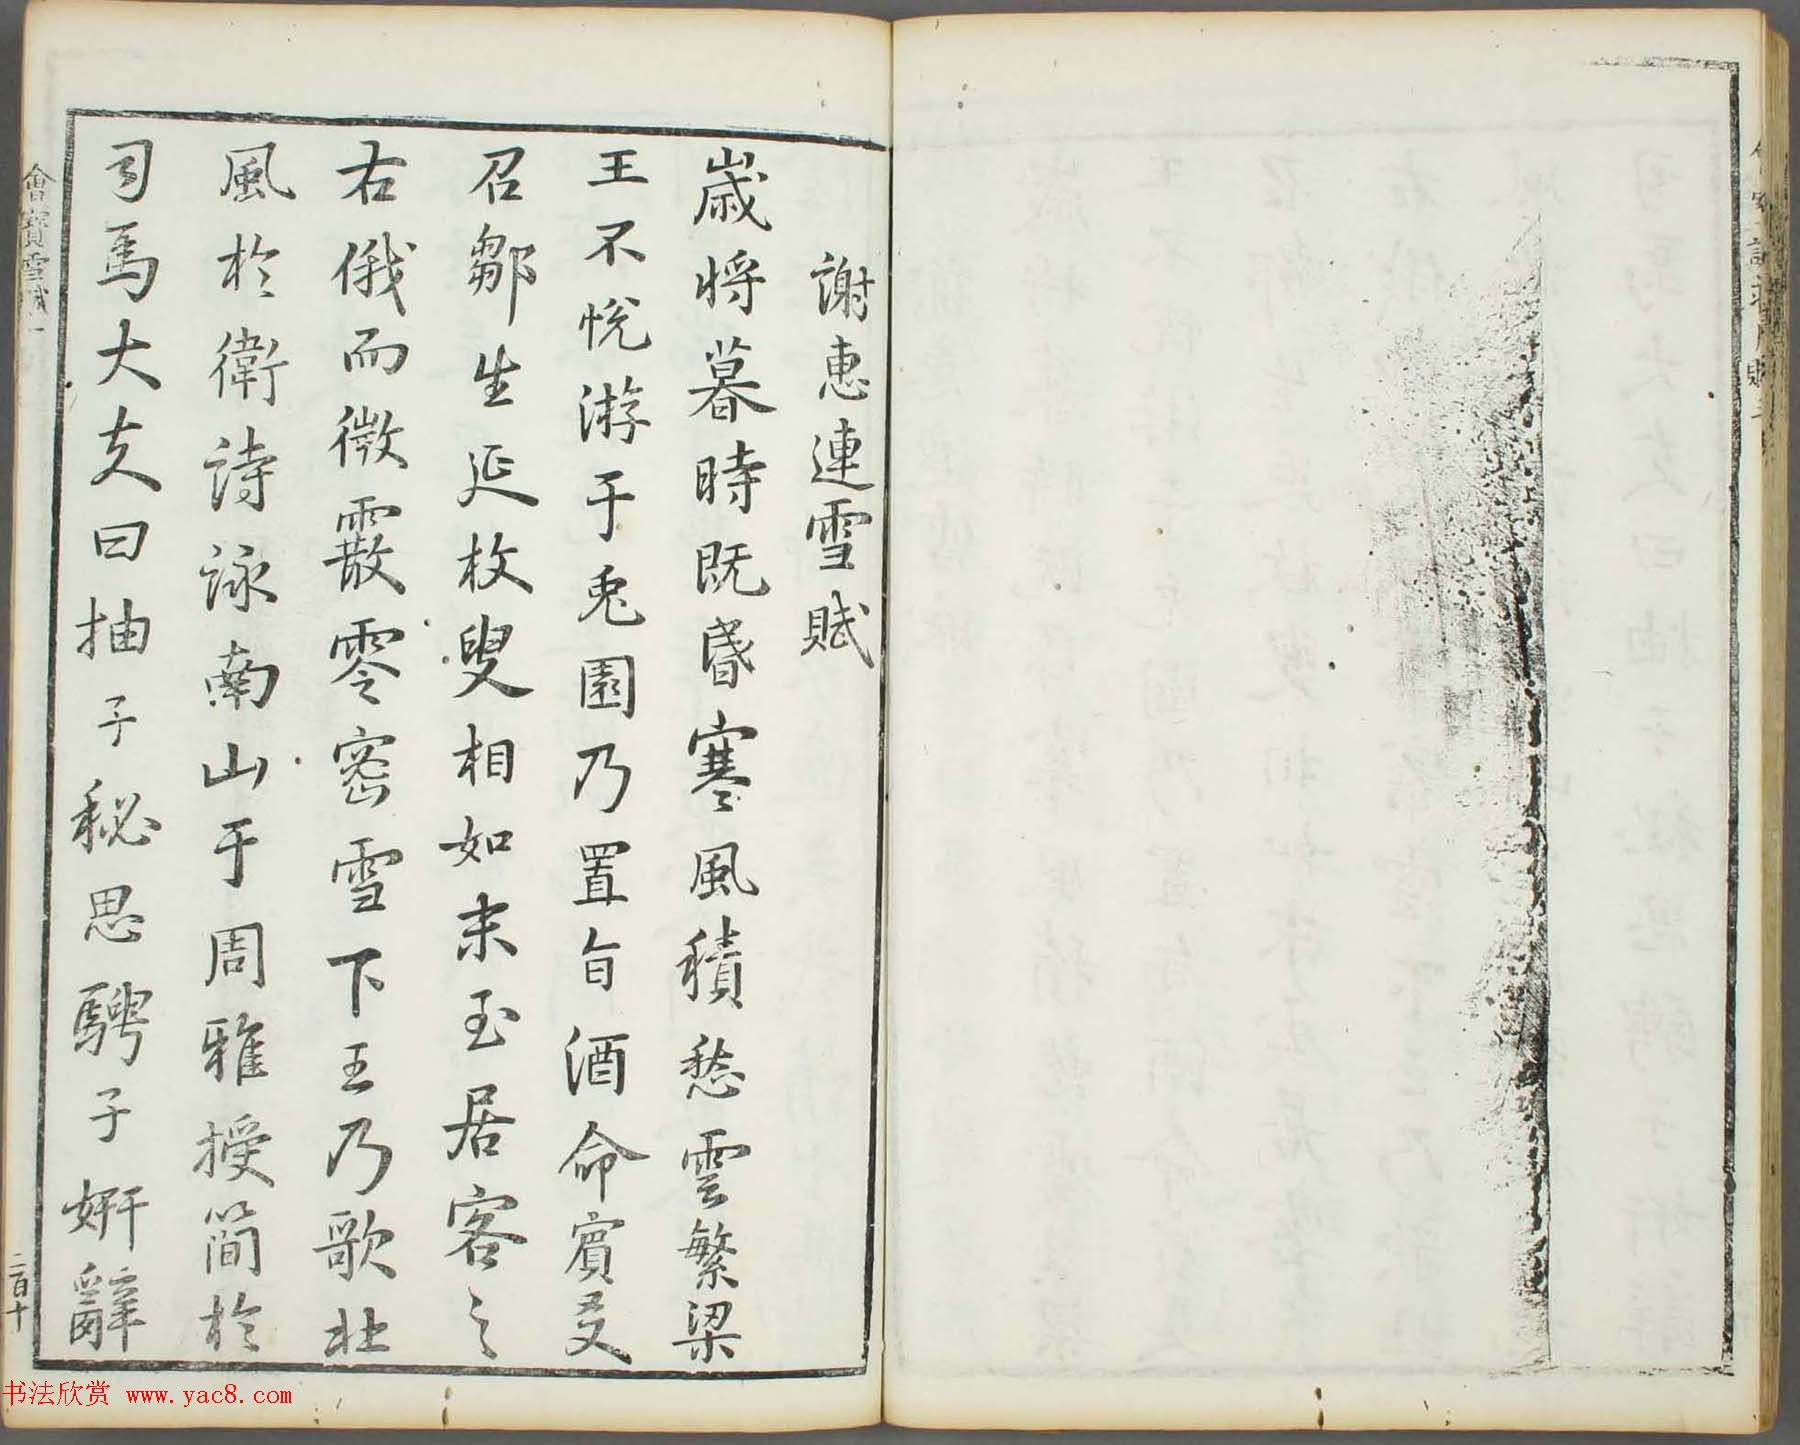 謝惠連雪賦
歲將暮時既昏寒風積愁雲繁梁
王不悅游于兎園乃置旨酒命賓友
召鄒生延枚叟相如末至居客之
右俄而微霰零密雪下王乃歌北
風於衛詩詠南山于周雅授簡於
司馬大夫曰抽子秘思騁子妍辭
會寶雪賦一
二百十
书法欣赏 www.yac8.com